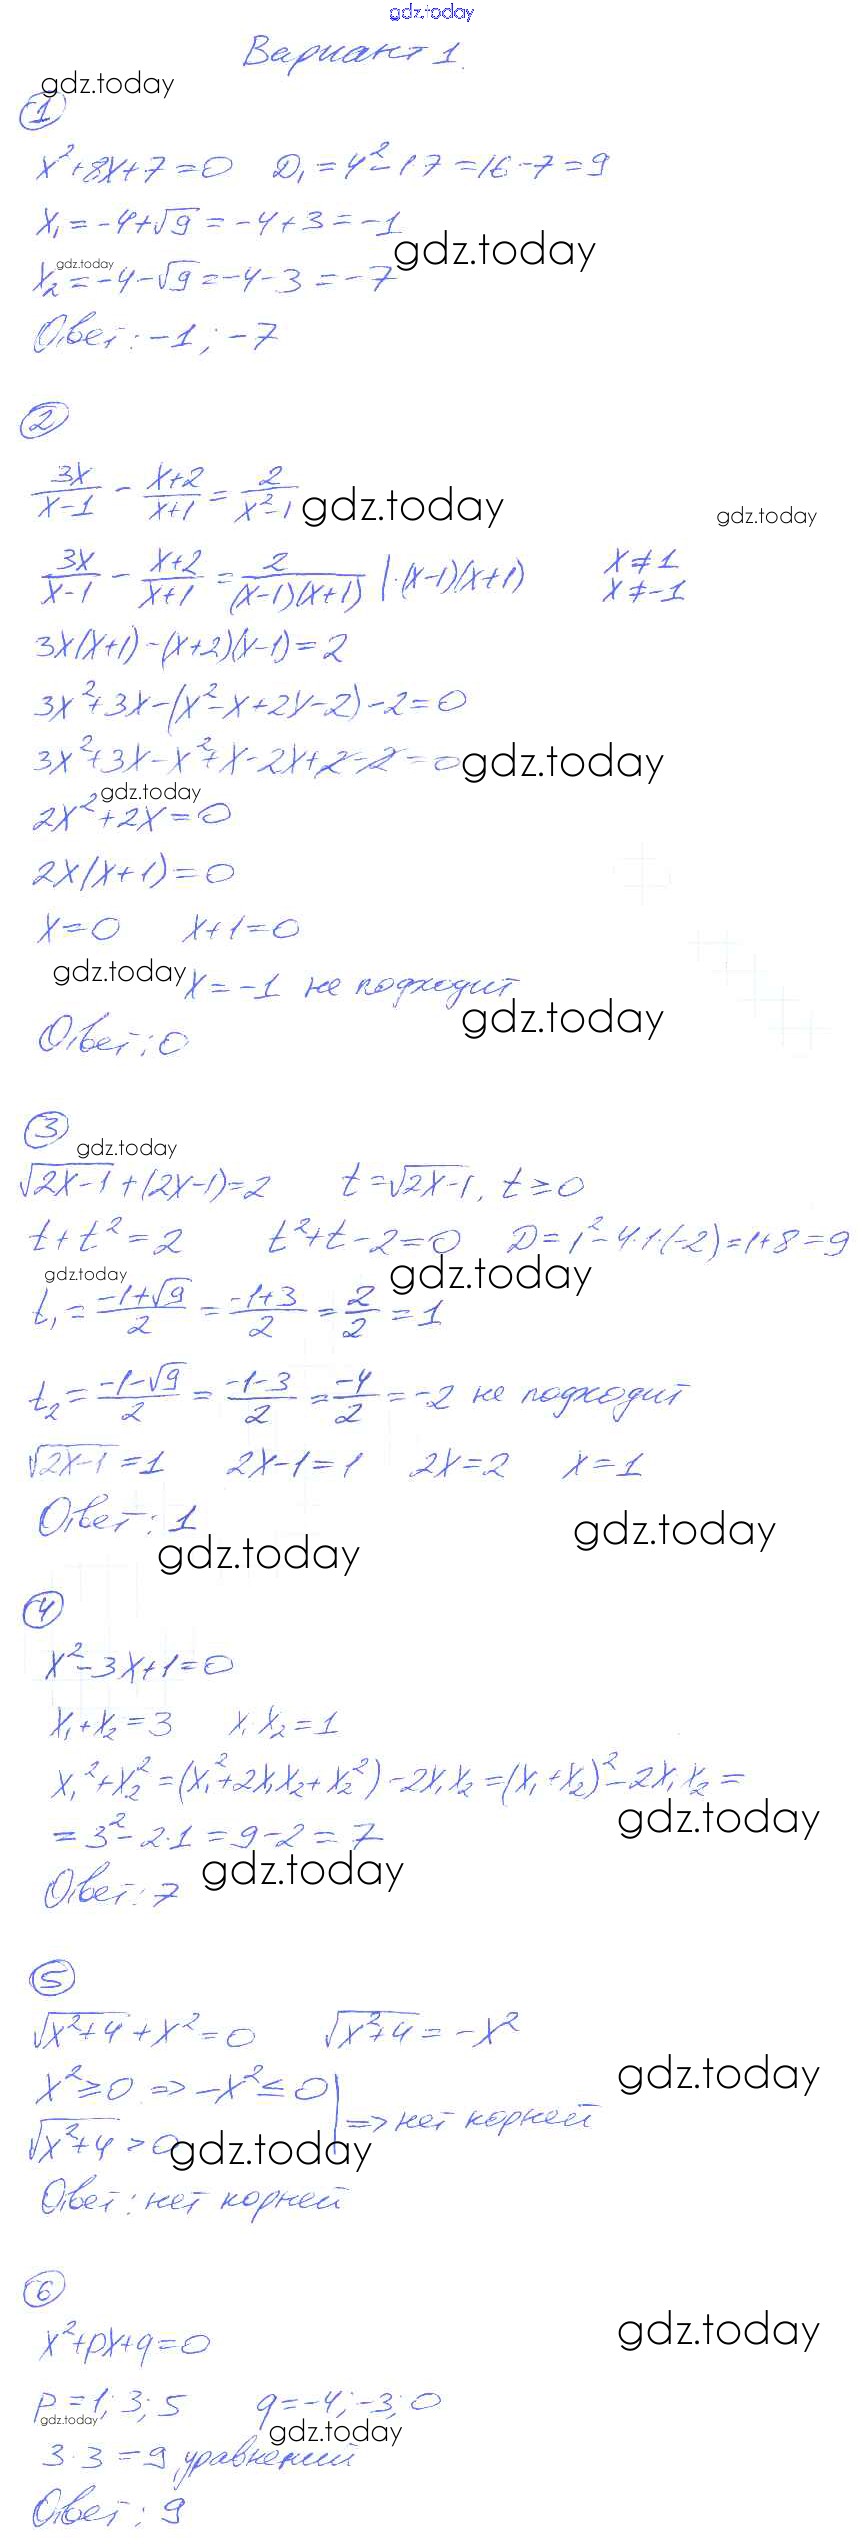 gdz.today
Вариант 1.
gdz.today
1
x²+8x+7=0 D₁=4²-1·7=16-7=9
x₁=-4+√9=-4+3=-1
gdz.today
gdz.today
x₂=-4-√9=-4-3=-7
Ответ: -1; -7
2
3x/(x-1) - (x+2)/(x+1) = 2/(x²-1)
gdz.today
gdz.today
3x/(x-1) - (x+2)/(x+1) = 2/((x-1)(x+1)) |·(x-1)(x+1) x≠1
x≠-1
3x(x+1)-(x+2)(x-1)=2
3x²+3x-(x²-x+2x-2)-2=0
3x²+3x-x²+x-2x+2-2=0
gdz.today
gdz.today
2x²+2x=0
2x(x+1)=0
x=0 x+1=0
gdz.today
x=-1 не подходит
gdz.today
Ответ: 0
3
gdz.today
√(2x-1)+(2x-1)=2 t=√(2x-1), t≥0
t+t²=2 t²+t-2=0 D=1²-4·1·(-2)=1+8=9
gdz.today
gdz.today
t₁=(-1+√9)/2=(-1+3)/2=2/2=1
t₂=(-1-√9)/2=(-1-3)/2=-4/2=-2 не подходит
√(2x-1)=1 2x-1=1 2x=2 x=1
Ответ: 1
gdz.today
gdz.today
4
x²-3x+1=0
x₁+x₂=3 x₁x₂=1
x₁²+x₂²=(x₁²+2x₁x₂+x₂²)-2x₁x₂=(x₁+x₂)²-2x₁x₂=
gdz.today
=3²-2·1=9-2=7
gdz.today
Ответ: 7
5
√(x²+4)+x²=0 √(x²+4)=-x²
gdz.today
x²≥0 => -x²≤0
=> нет корней
√(x²+4)>0
gdz.today
Ответ: нет корней
6
gdz.today
x²+px+q=0
p=1; 3; 5 q=-4; -3; 0
gdz.today
gdz.today
3·3=9 уравнений
Ответ: 9